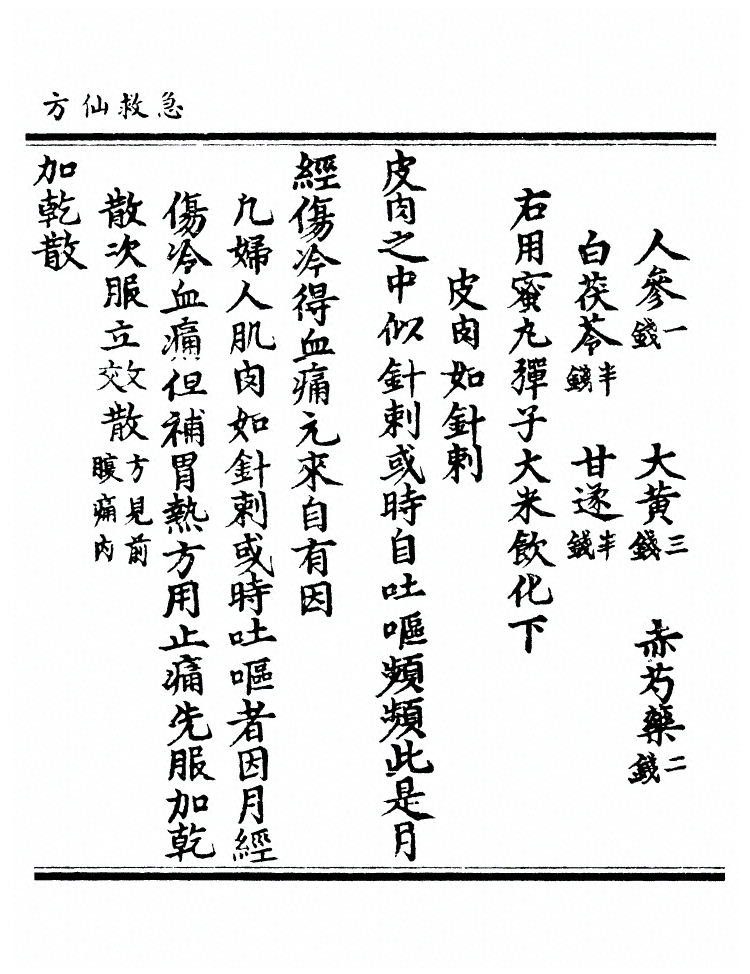 急救仙方
人參一錢 大黃三錢 赤芍藥二錢
白茯苓半錢 甘遂半錢
右用蜜丸彈子大米飲化下
皮肉如針刺
皮肉之中似針刺或時自吐嘔頻頻此是月
經傷冷得血痛元來自有因
凢婦人肌肉如針刺或時吐嘔者因月經
傷冷血痛但補胃熱方用止痛先服加乾
散次服立效散方見前腹痛內
加乾散